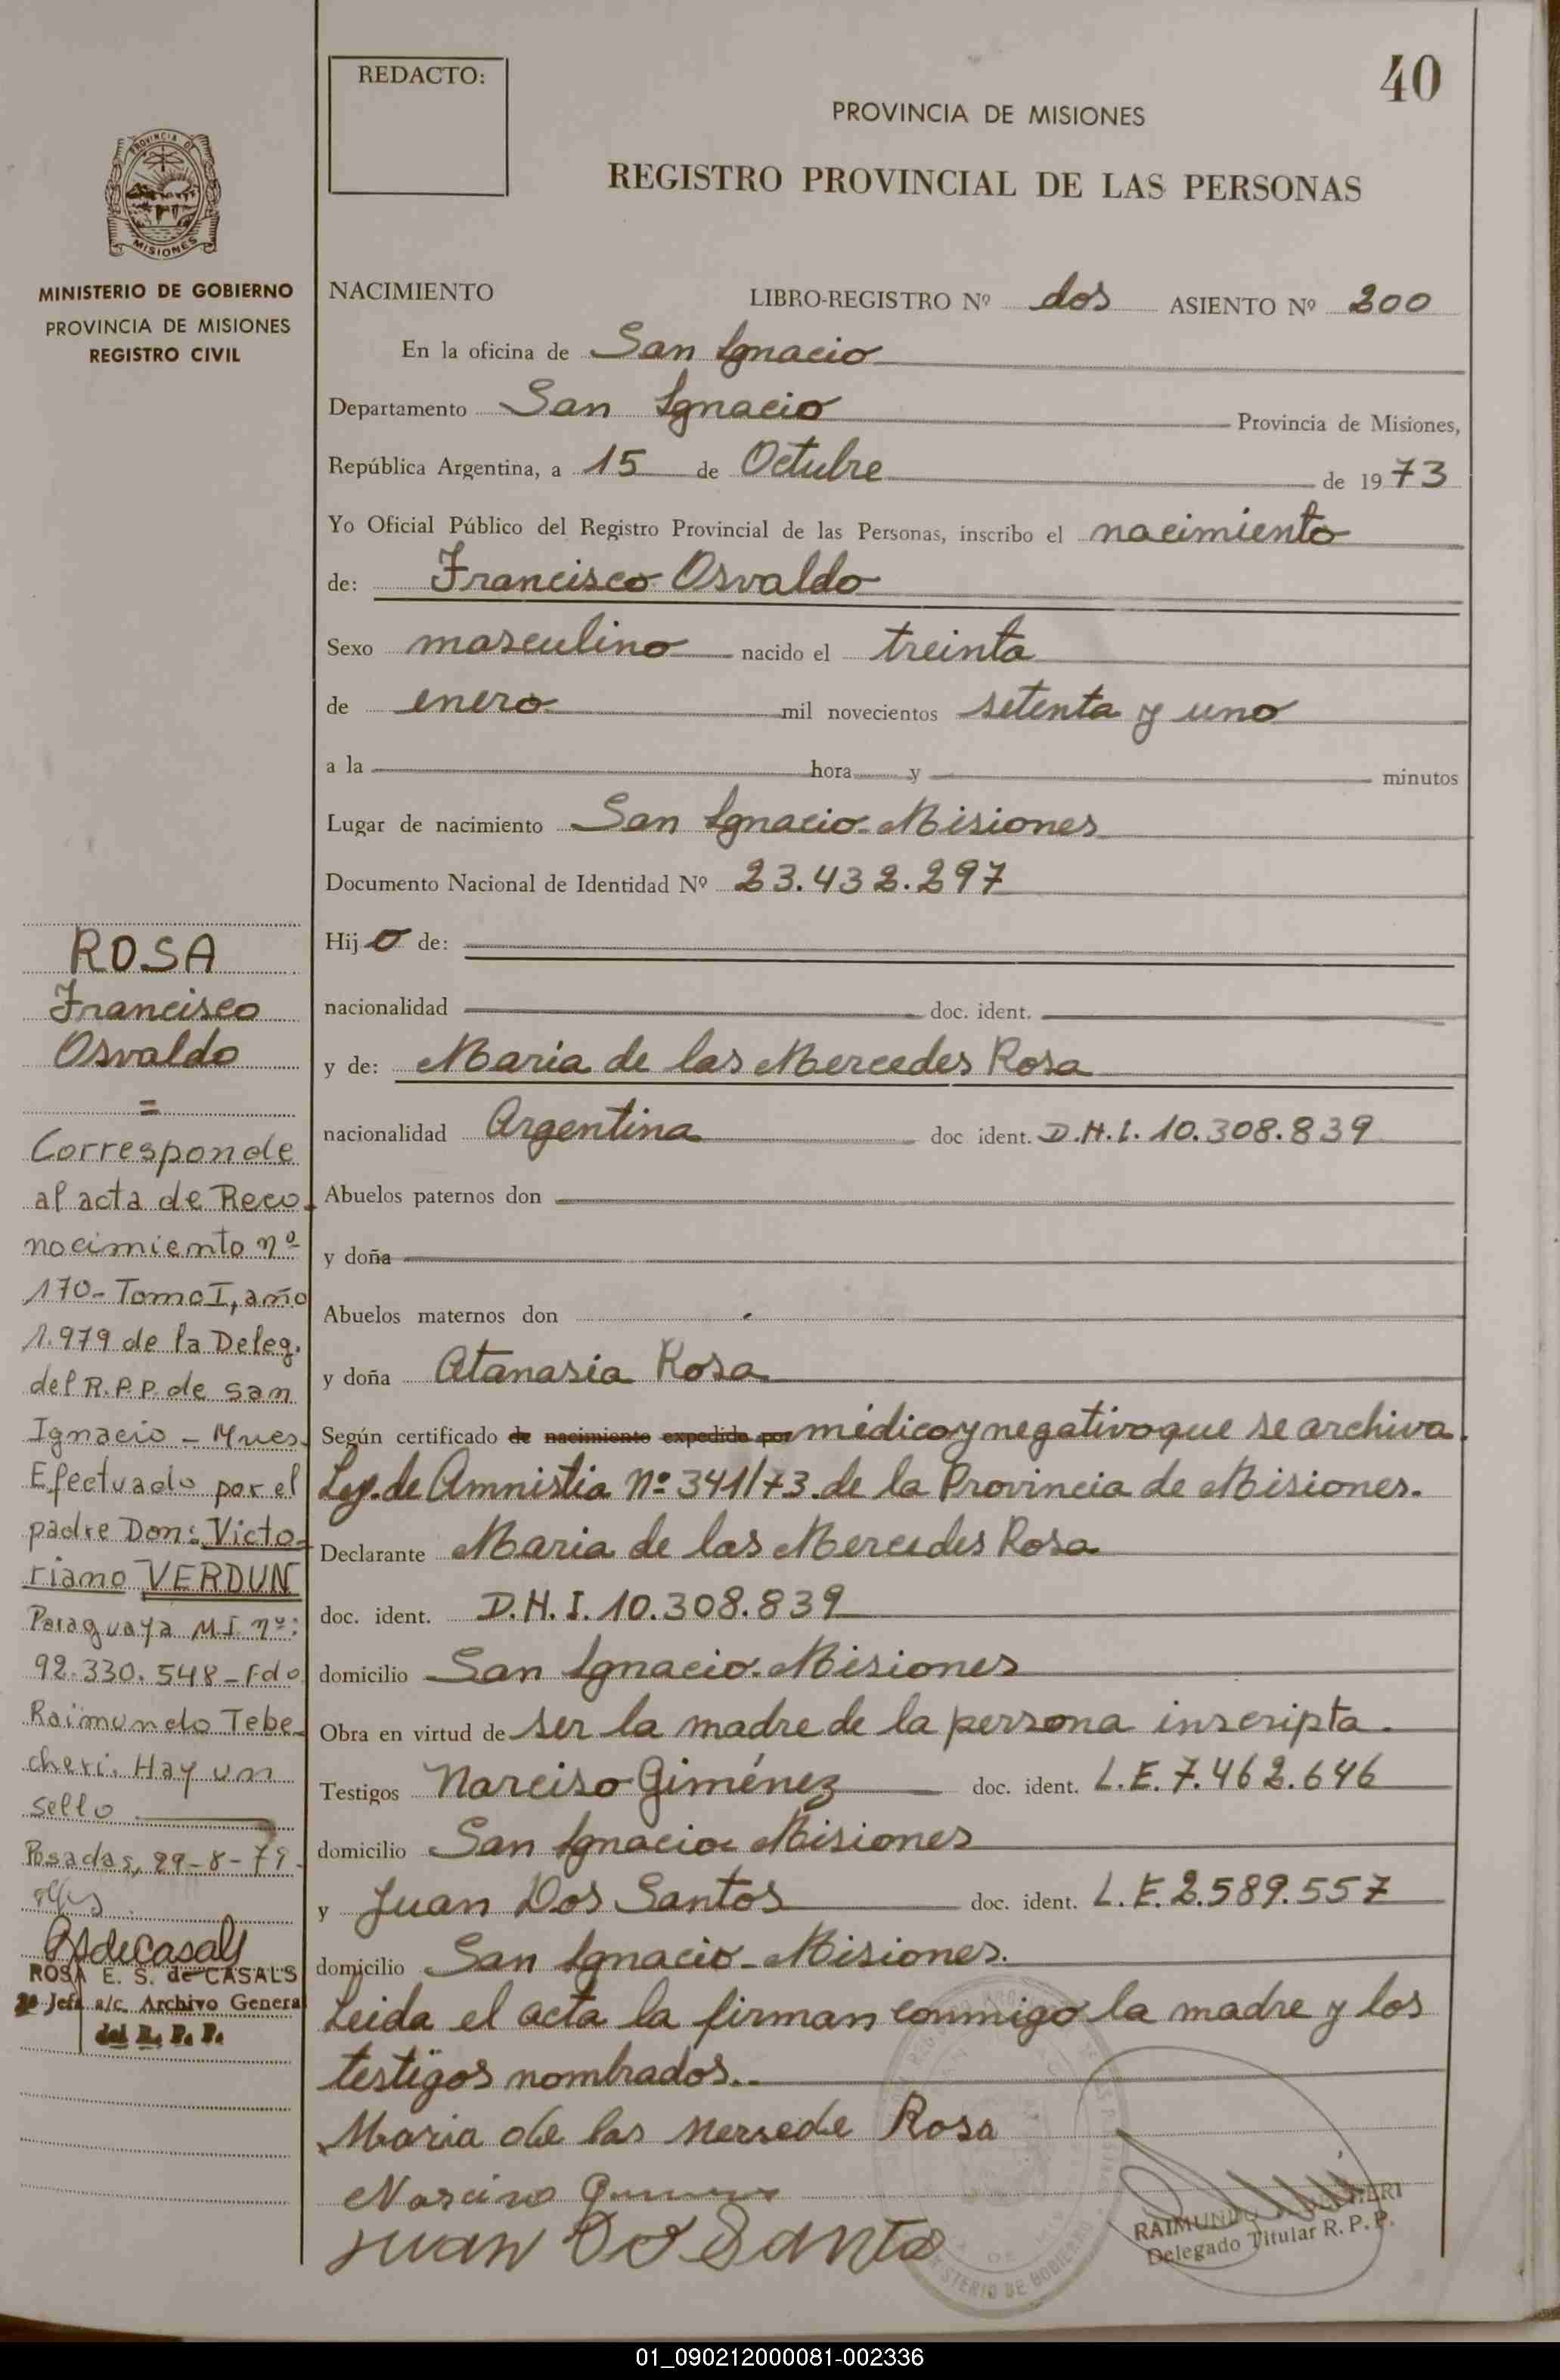 REDACTO:
40
PROVINCIA DE MISIONES
REGISTRO PROVINCIAL DE LAS PERSONAS
PROVINCIA DE
MISIONES
MINISTERIO DE GOBIERNO
PROVINCIA DE MISIONES
REGISTRO CIVIL
NACIMIENTO LIBRO-REGISTRO Nº dos ASIENTO Nº 200
En la oficina de San Ignacio
Departamento San Ignacio Provincia de Misiones,
República Argentina, a 15 de Octubre de 1973
Yo Oficial Público del Registro Provincial de las Personas, inscribo el nacimiento
de: Francisco Osvaldo
Sexo masculino nacido el treinta
de enero mil novecientos setenta y uno
a la hora y minutos
Lugar de nacimiento San Ignacio-Misiones
Documento Nacional de Identidad Nº 23.432.297
Hijo de:
nacionalidad doc. ident.
y de: Maria de las Mercedes Rosa
nacionalidad Argentina doc ident. D.N.I. 10.308.839
Abuelos paternos don
y doña
Abuelos maternos don
y doña Atanasia Rosa
Según certificado de nacimiento expedido por médico y negativo que se archiva.
Ley. de Amnistia Nº 341/73. de la Provincia de Misiones.
Declarante Maria de las Mercedes Rosa
doc. ident. D.N.I. 10.308.839
domicilio San Ignacio-Misiones
Obra en virtud de ser la madre de la persona inscripta.
Testigos Narciso Giménez doc. ident. L.E. 7.462.646
domicilio San Ignacio-Misiones
y Juan Dos Santos doc. ident. L.E. 2.589.557
domicilio San Ignacio-Misiones.
Leida el acta la firman conmigo la madre y los
testigos nombrados.-
Maria de las Mersede Rosa
Narciso
Juan Do Santo
RAIMUNDO
Delegado Titular R.P.P.
MINISTERIO DE GOBIERNO
ROSA
Francisco
Osvaldo
=
Corresponde
al acta de Reco-
nocimiento nº
170- Tomo I, año
1.979 de la Deleg.
del R.P.P. de San
Ignacio - Mnes.
Efectuado por el
padre Don: Victo-
riano VERDUN
Paraguaya M.I. nº:
92.330.548-Fdo
Raimundo Tebe-
cheri. Hay un
sello
Posadas, 29-8-79.
ROSA E. S. de CASALS
2ª Jefa a/c. Archivo General
del R. P. P.
01_090212000081-002336